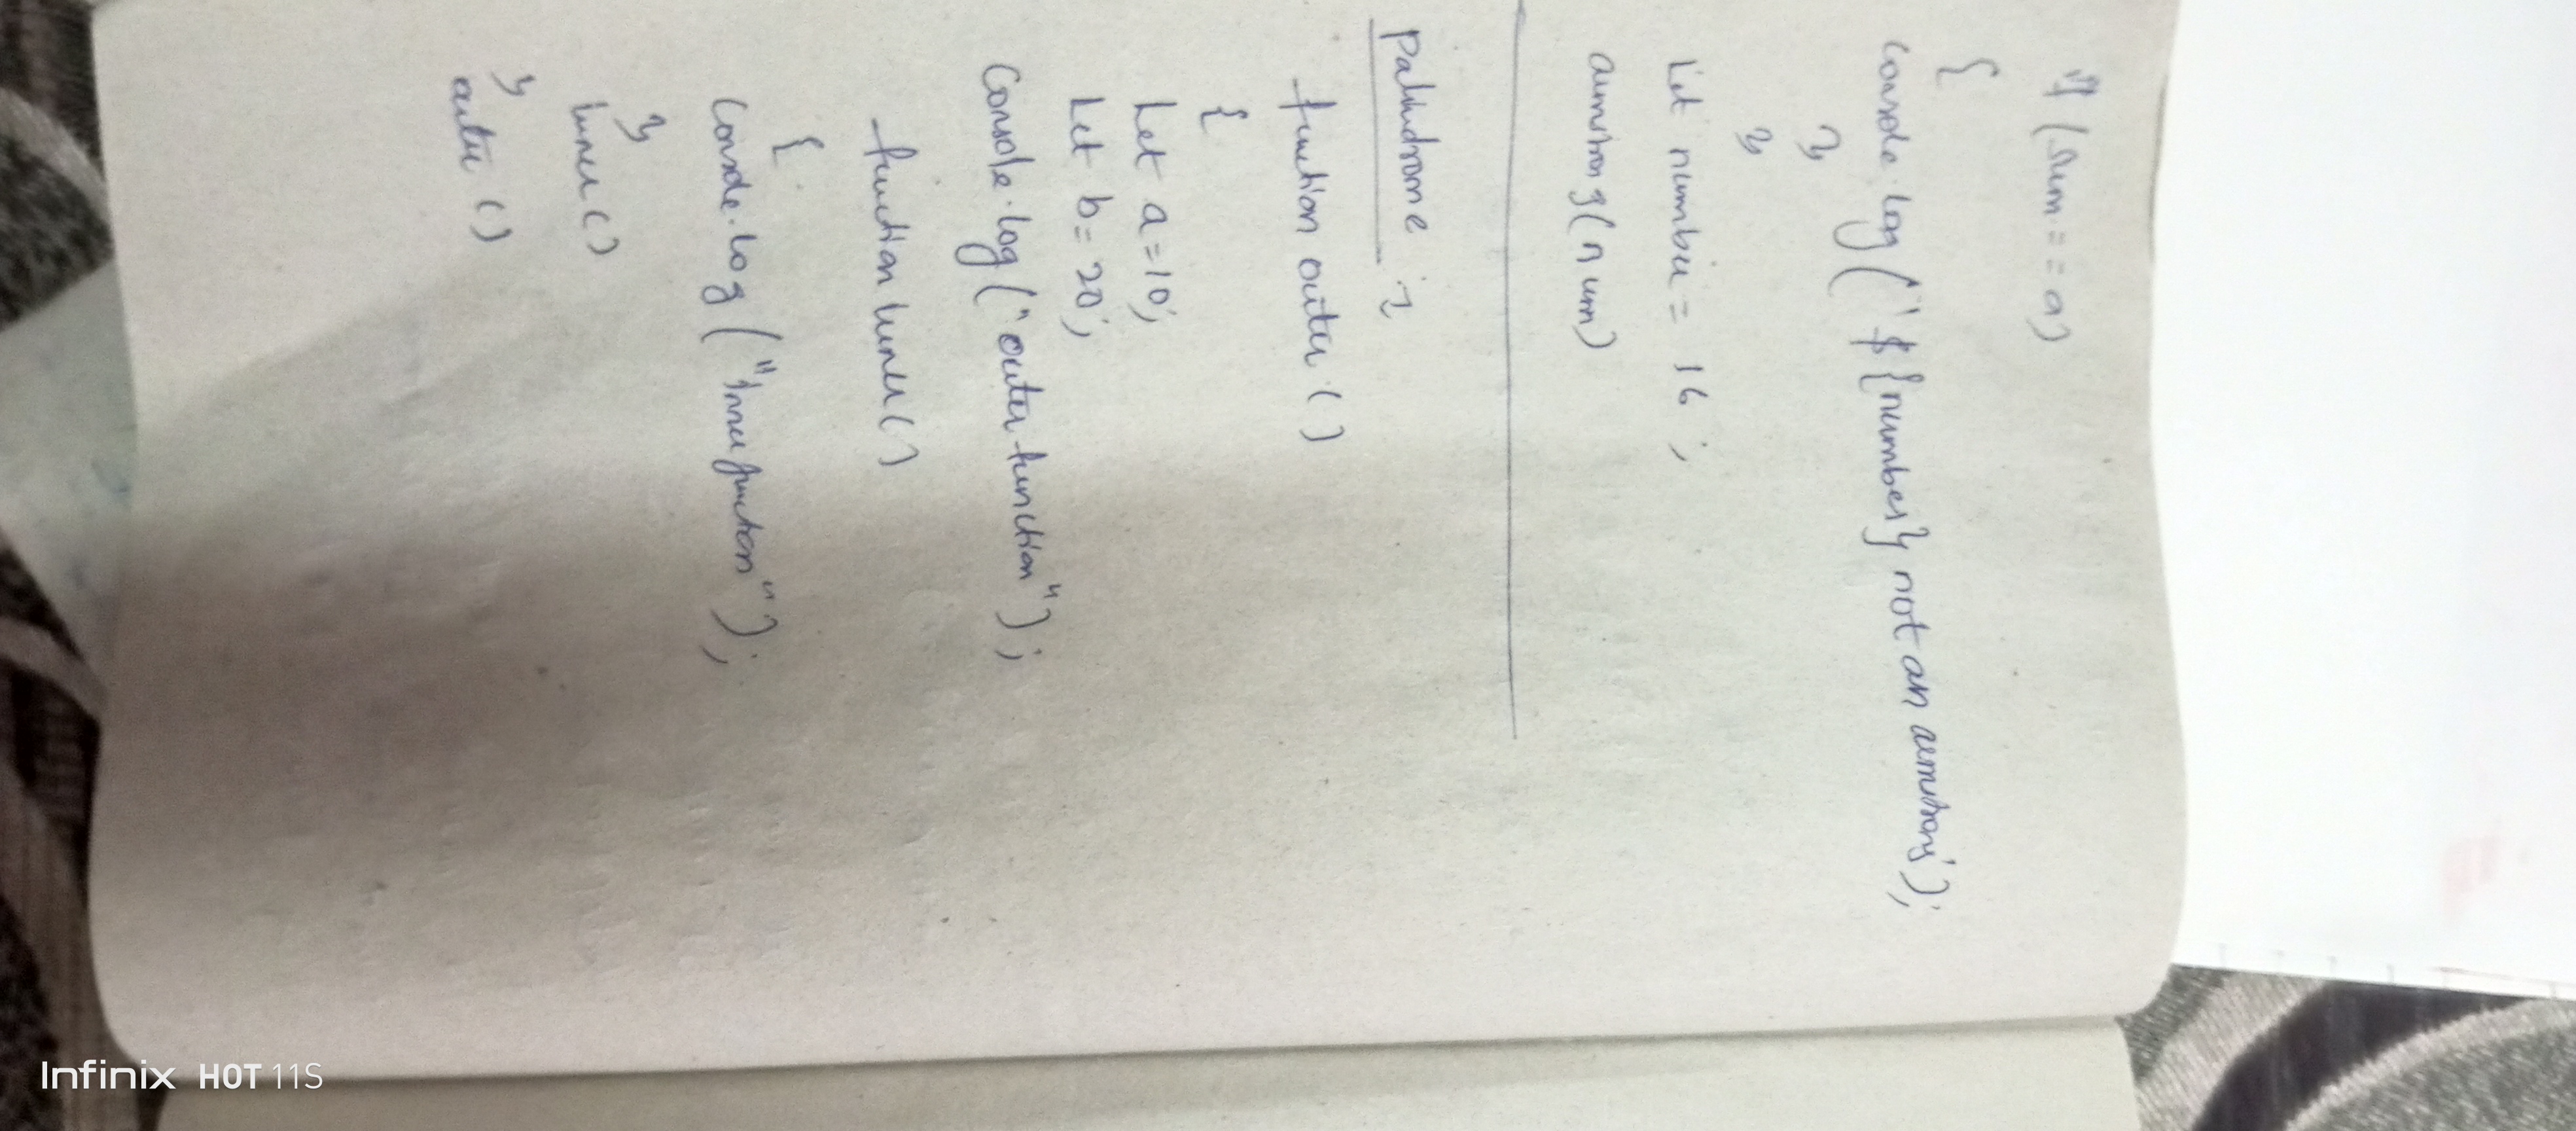 if (sum == a)
{
console.log('${number} not an armstrong');
}
}
Let number = 16;
armstrong(num)
Palindrome :
function outer ()
{
Let a = 10;
Let b = 20;
Console.log("outer function");
function inner()
{
Console.log("inner function");
}
inner()
}
outer ()
Infinix HOT 11S